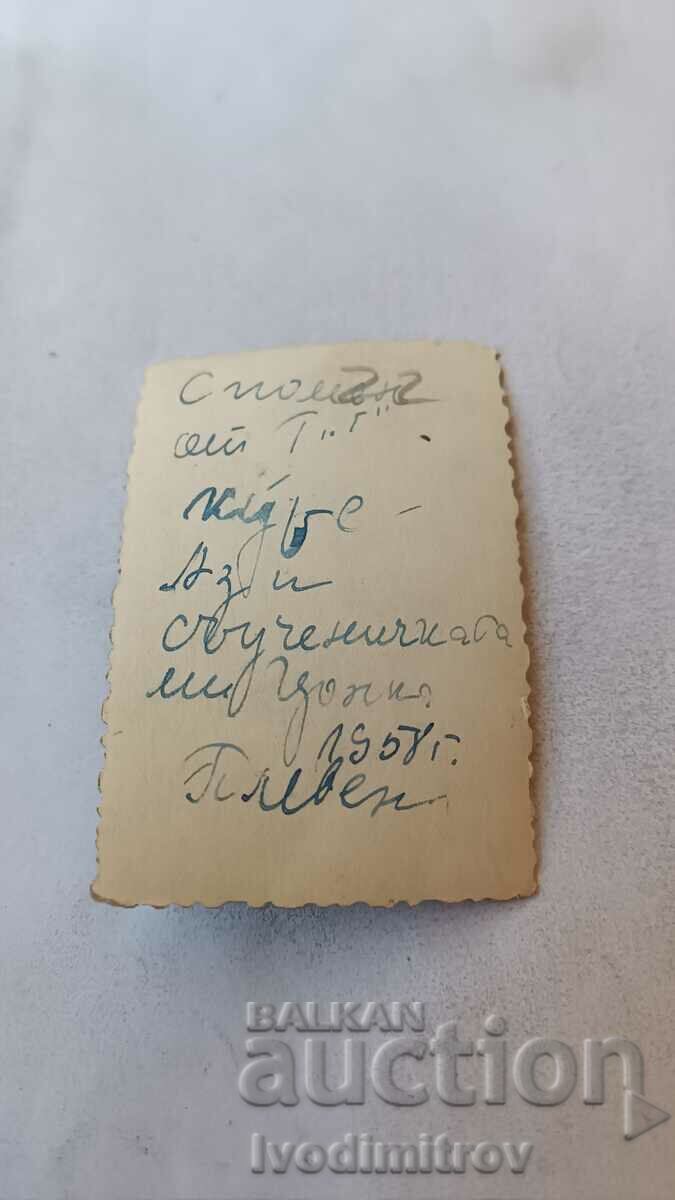 Спомен
от I "г"
курс -
Аз и
съученичката
ми Цонка
1958 г.
Плевен
BALKAN
auction
Ivodimitrov